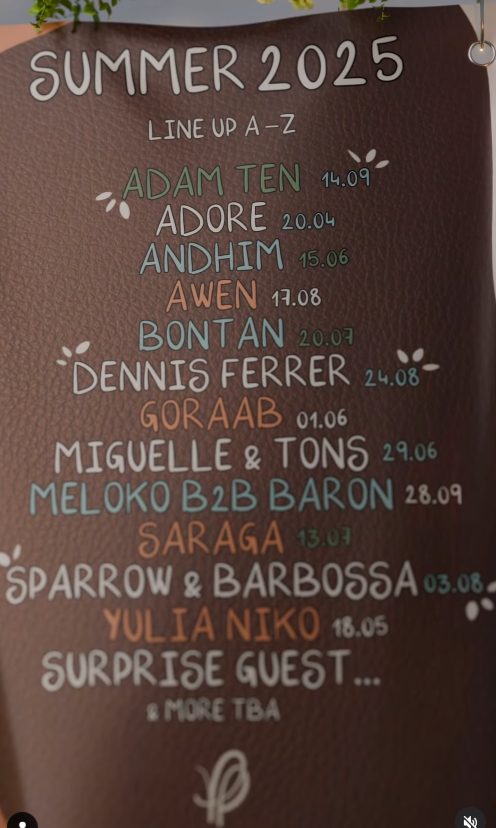 SUMMER 2025
LINE UP A-Z
ADAM TEN 14.09
ADORE 20.04
ANDHIM 15.06
AWEN 17.08
BONTAN 20.07
DENNIS FERRER 24.08
GORAAB 01.06
MIGUELLE & TONS 29.06
MELOKO B2B BARON 28.09
SARAGA 13.07
SPARROW & BARBOSSA 03.08
YULIA NIKO 18.05
SURPRISE GUEST...
& MORE TBA